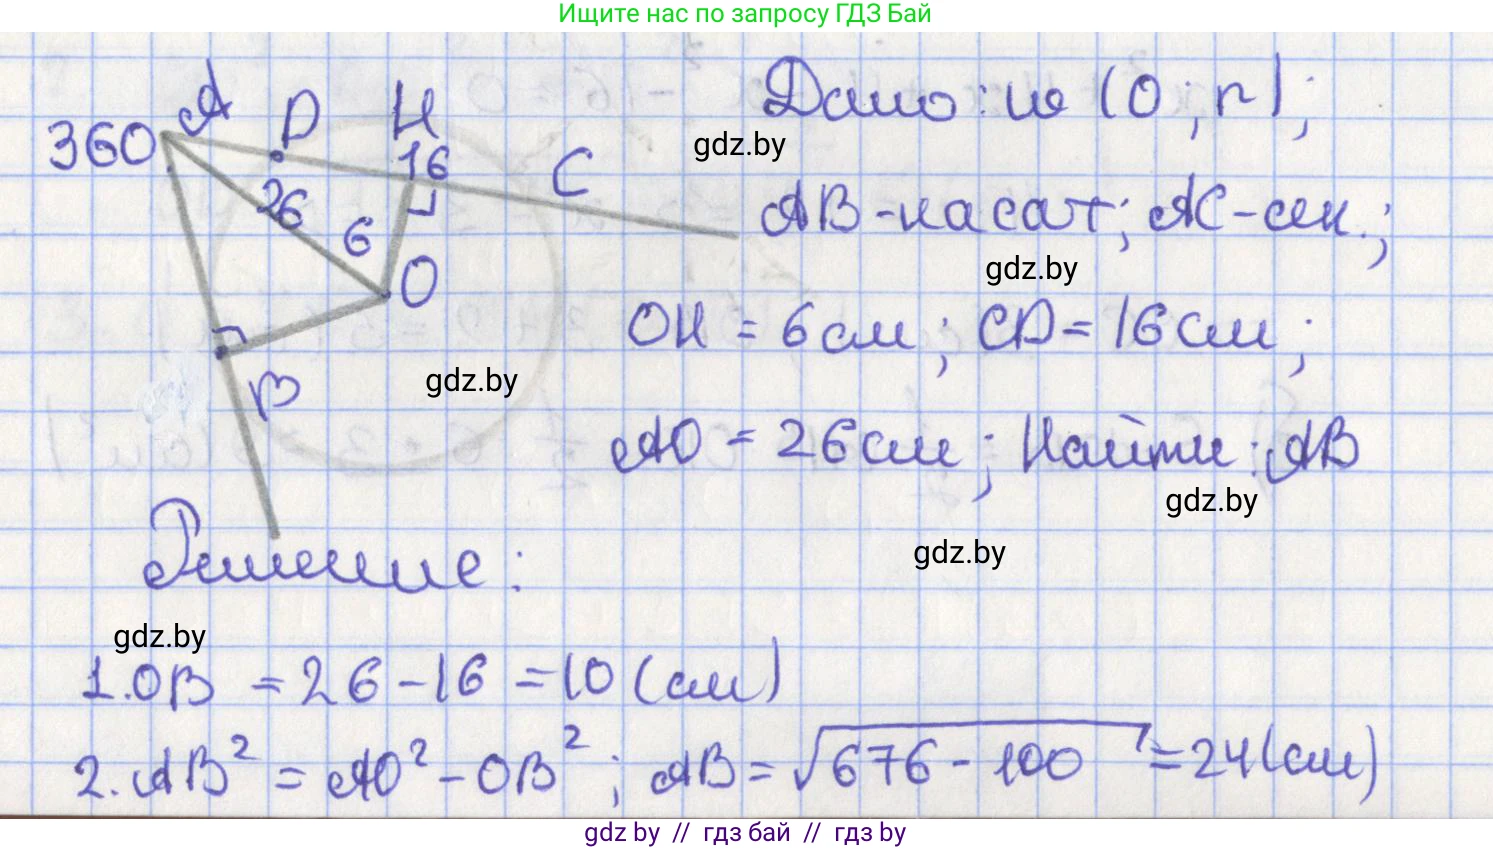 Ищите нас по запросу ГДЗ Бай
360 A D H
16 C
26 6
O
B
Дано: ω (O; r);
gdz.by
AB - касат; AC - сек.;
gdz.by
OH = 6 см; CD = 16 см;
gdz.by
AO = 26 см; Найти: AB
gdz.by
gdz.by
Решение:
gdz.by
1. OB = 26 - 16 = 10 (см)
2. AB² = AO² - OB²; AB = √676 - 100 = 24 (см)
gdz by // гдз бай // гдз by